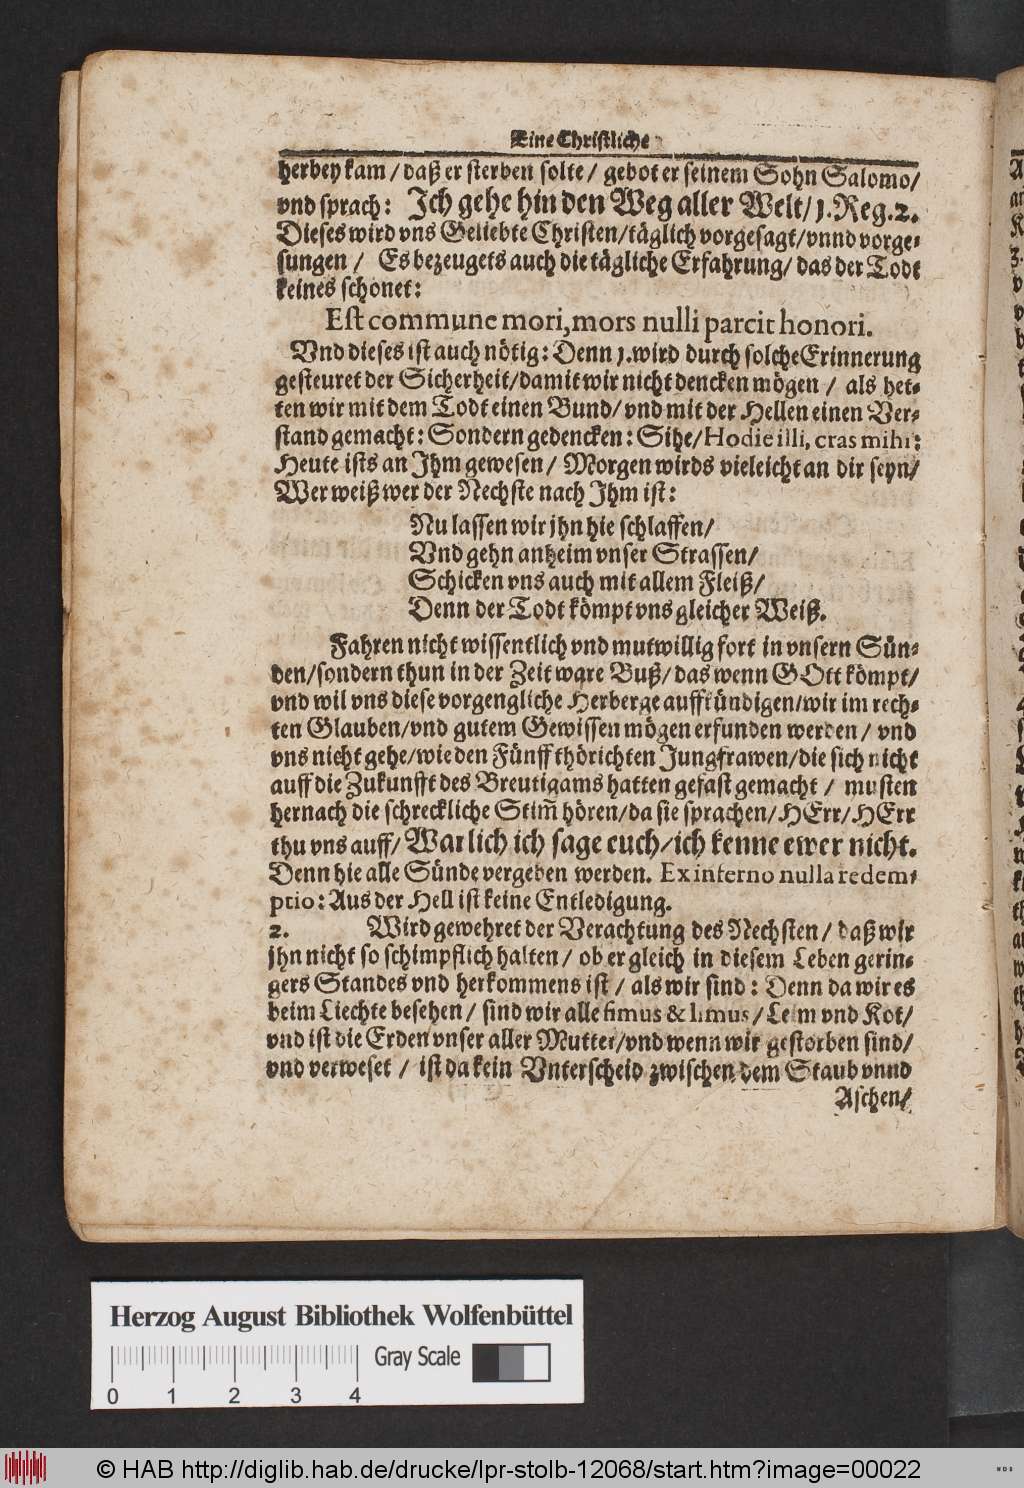 Eine Christliche
herbey kam / daß er sterben solte / gebot er seinem Sohn Salomo/
vnd sprach: Ich gehe hin den Weg aller Welt/ 1. Reg. 2.
Dieses wird vns Geliebte Christen/täglich vorgesagt/vnnd vorge-
sungen / Es bezeugets auch die tägliche Erfahrung/ das der Todt
keines schonet:
Est commune mori, mors nulli parcit honori.
Vnd dieses ist auch nötig: Denn 1. wird durch solche Erinnerung
gesteuret der Sicherheit/damit wir nicht dencken mögen / als het-
ten wir mit dem Todt einen Bund/ vnd mit der Hellen einen Ver-
stand gemacht: Sondern gedencken: Sihe/ Hodie illi, cras mihi:
Heute ists an Ihm gewesen / Morgen wirds vieleicht an dir seyn/
Wer weiß wer der Nechste nach Ihm ist:
Nu lassen wir jhn hie schlaffen/
Vnd gehn anheim vnser Strassen/
Schicken vns auch mit allem Fleiß/
Denn der Todt kömpt vns gleicher Weiß.
Fahren nicht wissentlich vnd mutwillig fort in vnsern Sün-
den/sondern thun in der Zeit ware Buß/das wenn GOtt kömpt/
vnd wil vns diese vorgengliche Herberge auffkündigen/wir im rech-
ten Glauben/vnd gutem Gewissen mögen erfunden werden / vnd
vns nicht gehe/wie den Fünff thörichten Jungfrawen/die sich nicht
auff die Zukunfft des Breutigams hatten gefast gemacht / musten
hernach die schreckliche Stim̃ hören/da sie sprachen/HErr/HErr
thu vns auff/ Warlich ich sage euch/ich kenne ewer nicht.
Denn hie alle Sünde vergeben werden. Ex inferno nulla redem-
ptio: Aus der Hell ist keine Entledigung.
2. Wird gewehret der Verachtung des Nechsten / daß wir
jhn nicht so schimpflich halten / ob er gleich in diesem Leben gerin-
gers Standes vnd herkommens ist / als wir sind: Denn da wir es
beim Liechte besehen / sind wir alle fimus & limus / Leim vnd Kot/
vnd ist die Erden vnser aller Mutter/vnd wenn wir gestorben sind/
vnd verweset / ist da kein Vnterscheid zwischen dem Staub vnnd
Aschen/
Herzog August Bibliothek Wolfenbüttel
Gray Scale
0 1 2 3 4
© HAB http://diglib.hab.de/drucke/lpr-stolb-12068/start.htm?image=00022